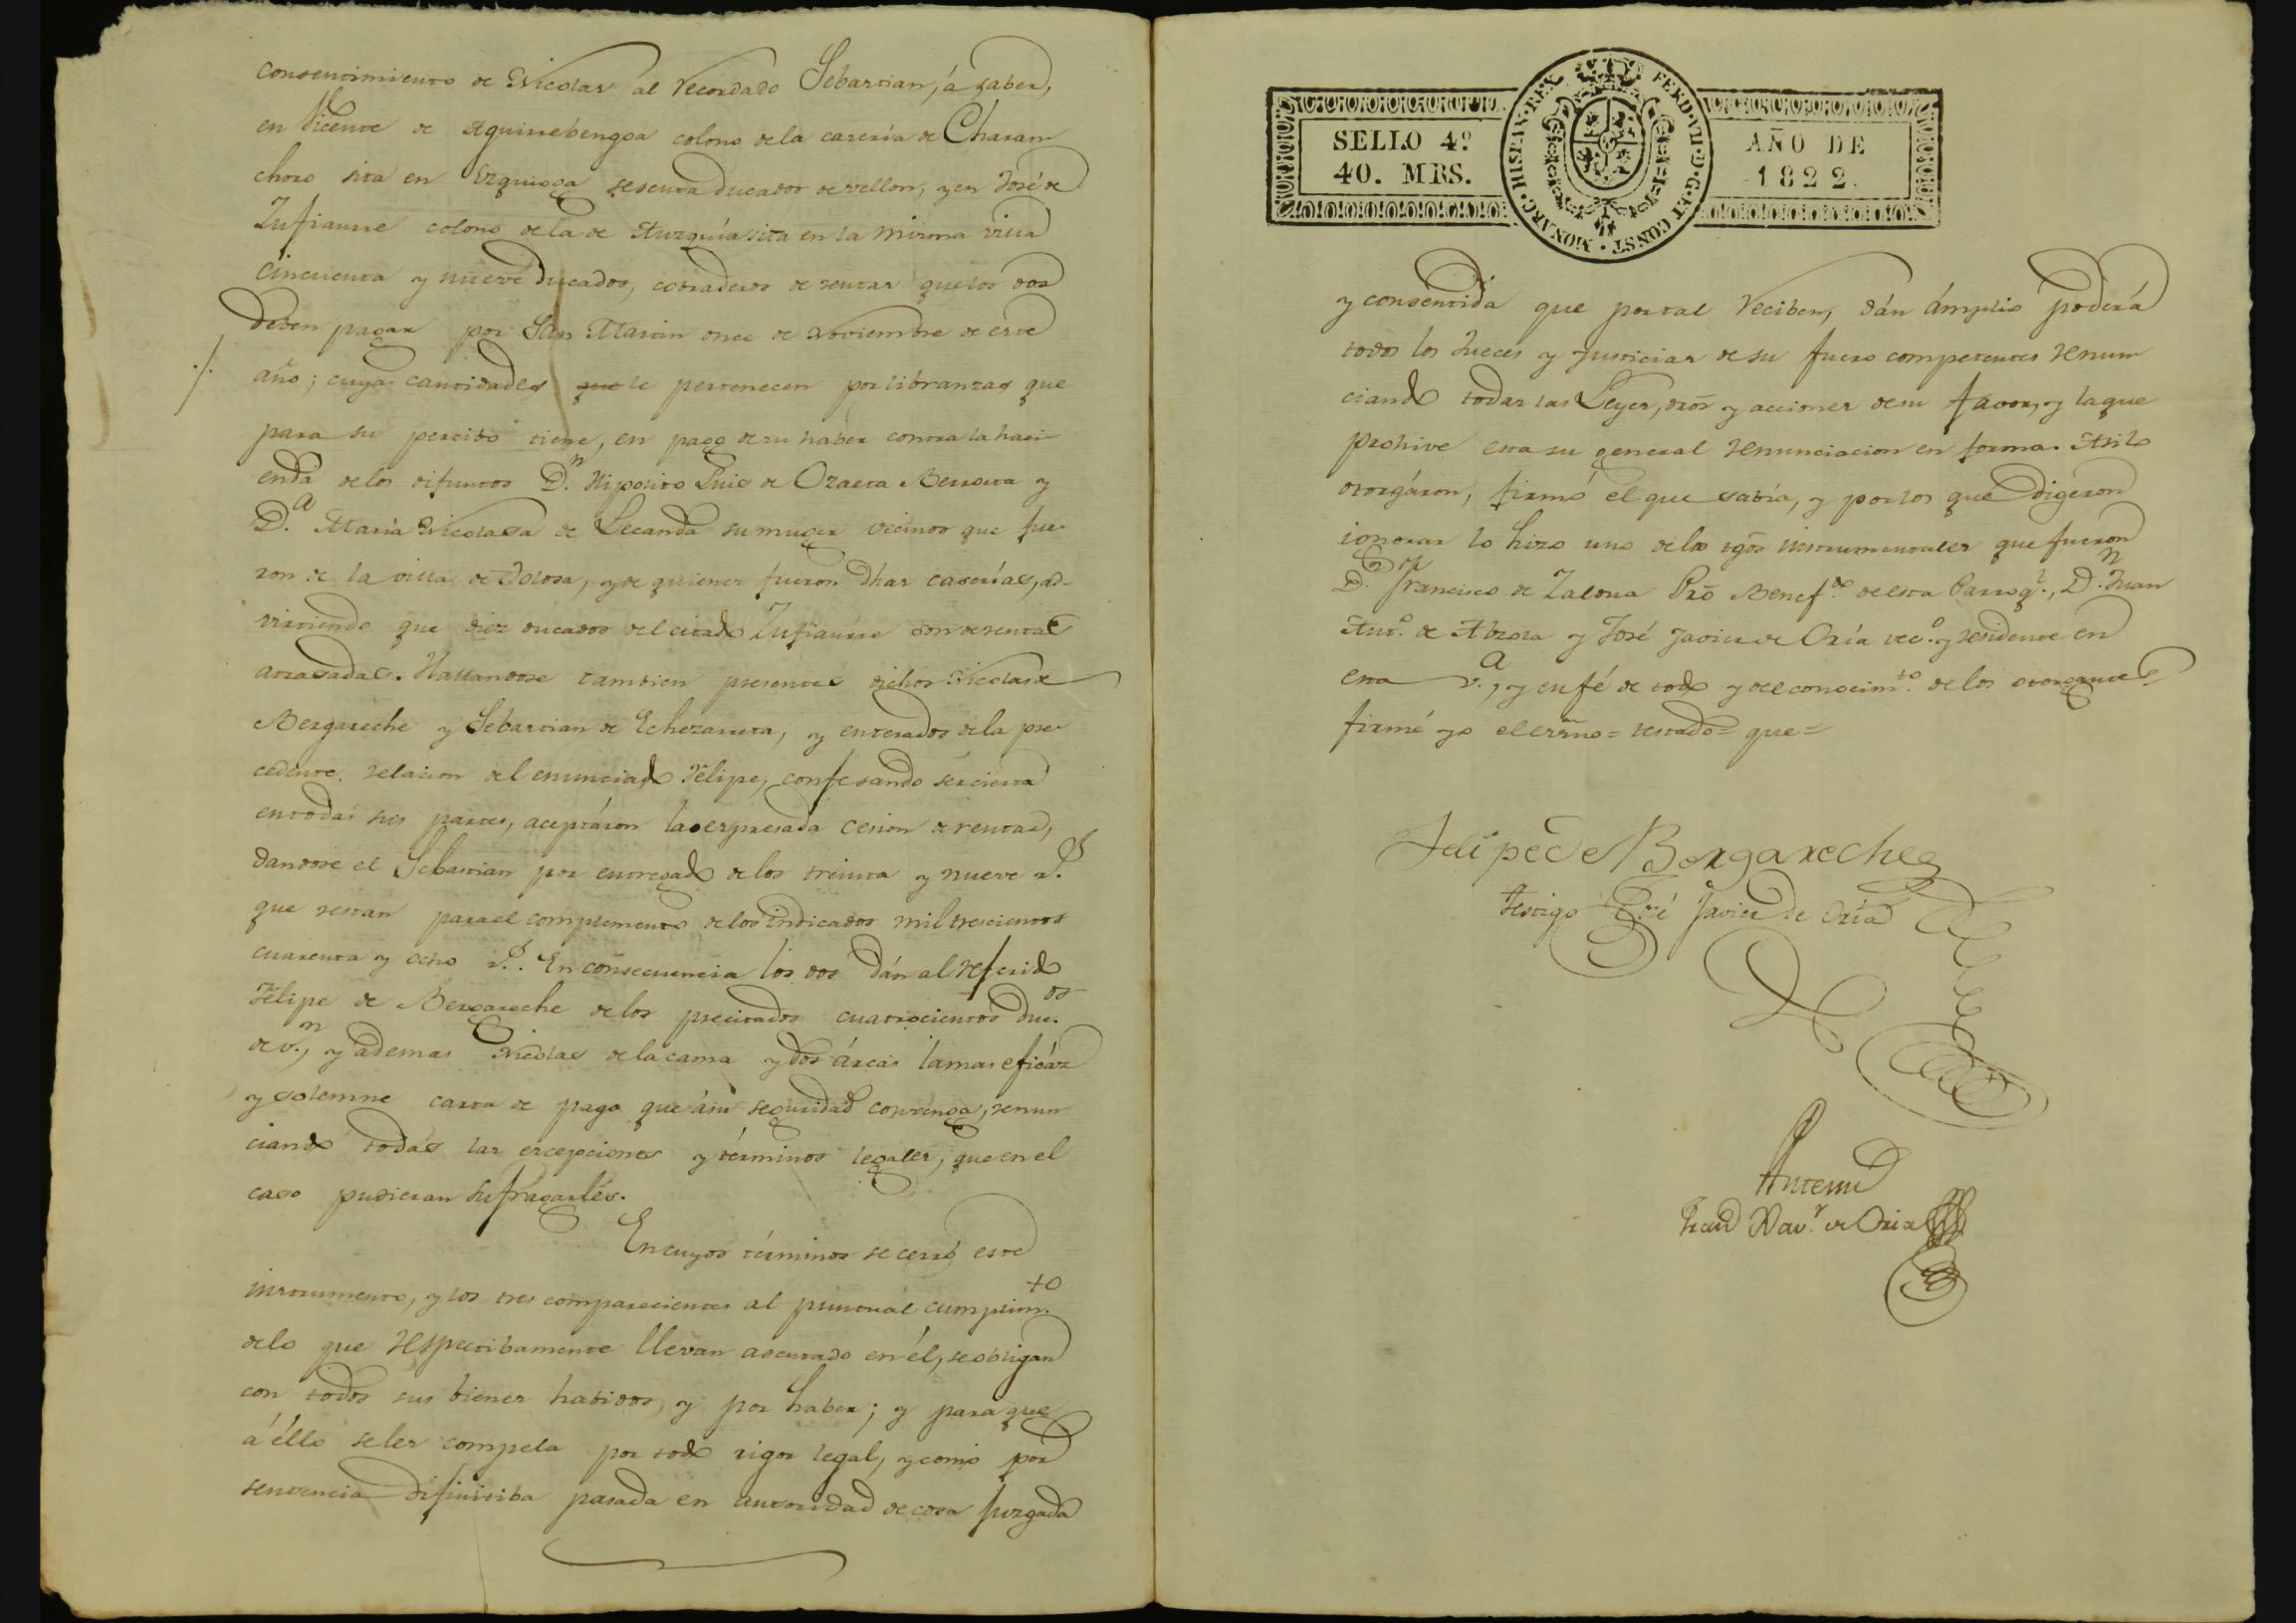 consentimiento de Nicolas al recordado Sebastian, á saber,
en Vicente de Aguirrebengoa colono de la caseria de Charan
chozo sita en Ezquioga sesenta ducados de vellon, y en José de
Zufiaurre colono de la de Auzquía sita en la misma villa
cincuenta y nueve ducados, cobraderos de rentas que los dos
deben pagar por San Martin once de Noviembre de este
año; cuyas cantidades que le pertenecen por libranzas que
para su percibo tiene, en pago de su haber contra la haci-
enda de los difuntos D.n Hipolito Luis de Ozaeta Berroeta y
D.a Maria Nicolasa de Lecanda su muger vecinos que fue-
ron de la villa de Tolosa, y de quienes fueron dhas caserías, ad-
virtiendo que diez ducados del citado Zufiaurre son de rentas
atrasadas. Hallandose tambien presentes dichos Nicolas de
Bergareche y Sebastian de Echezarreta, y enterados de la pre-
cedente relacion del enunciado Félipe, confesando ser cierta
en todas sus partes, aceptáron la expresada cesion de rentas,
dandose el Sebastian por entregado de los treinta y nueve r.s
que restan para el complemento de los indicados mil trescientos
cuarenta y ocho r.s. En consecuencia los dos dán al referido
Félipe de Bergareche de los precitados cuatrocientos duc.os
de v.n, y ademas Nicolas de la cama y dos árcas la mas eficáz
y solemne carta de pago que á su seguridad convenga, renun
ciando todas las excepciones y términos legales, que en el
caso pudieran sufragarles.
En cuyos términos se cerró este
instrumento, y los tres comparecientes al puntual cumplim.to
de lo que respectibamente llevan asentado en él, se obligan
con todos sus bienes habidos, y por haber; y para que
á éllo se les compela por todo rigor legal, y como por
sentencia difinitiba pasada en autoridad de cosa juzgada
SELLO 4º
40. MRS.
FERD·VII·D·G·ET CONST·MONARC·HISPAN·REX
AÑO DE
1822.
y consentida que por tal reciben, dán ámplio poder á
todos los Jueces y Justicias de su fuero competentes renun
ciando todas las Leyes, dros y acciones de su favor, y la que
prohive esta su general renunciacion en forma. Asi lo
otorgáron, firmó el que sabía, y por los que digeron
ignorar lo hizo uno de los tgos instrumentales que fueron
D.n Francisco de Zaldua Pro Benef.do de esta Parroq.l, D.n Juan
Ant.o de Alzola y José Javier de Oría vec.o y residente en
esta v.a, y en fé de todo y del conocim.to de los otorgantes
firmé yo el essno = testado = que =
Felipe de Bergareche
Testigo José Javier de Oría
Antemi
Fran.co Xav.r de Oria